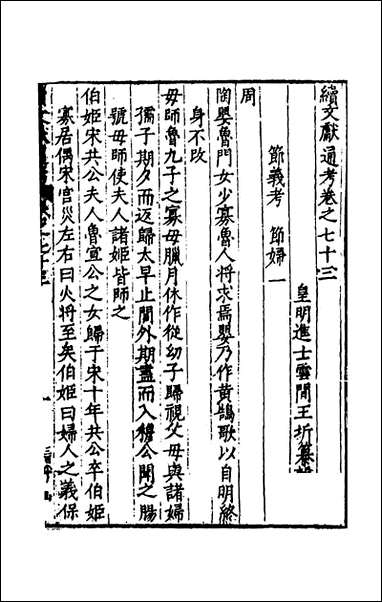 續文獻通考卷之七十三
皇明進士雲間王圻纂
節義考 節婦一
周
陶嬰魯門女少寡魯人將求焉嬰乃作黄鵠歌以自明終
身不改
母師魯九子之寡母臘月休作從幼子歸視父母與諸婦
孺子期夕而返歸太早止閭外期盡而入穆公聞之賜
號母師使夫人諸姬皆師之
伯姬宋共公夫人魯宣公之女歸于宋十年共公卒伯姬
寡居偶宋宫災左右曰火將至矣伯姬曰婦人之義保